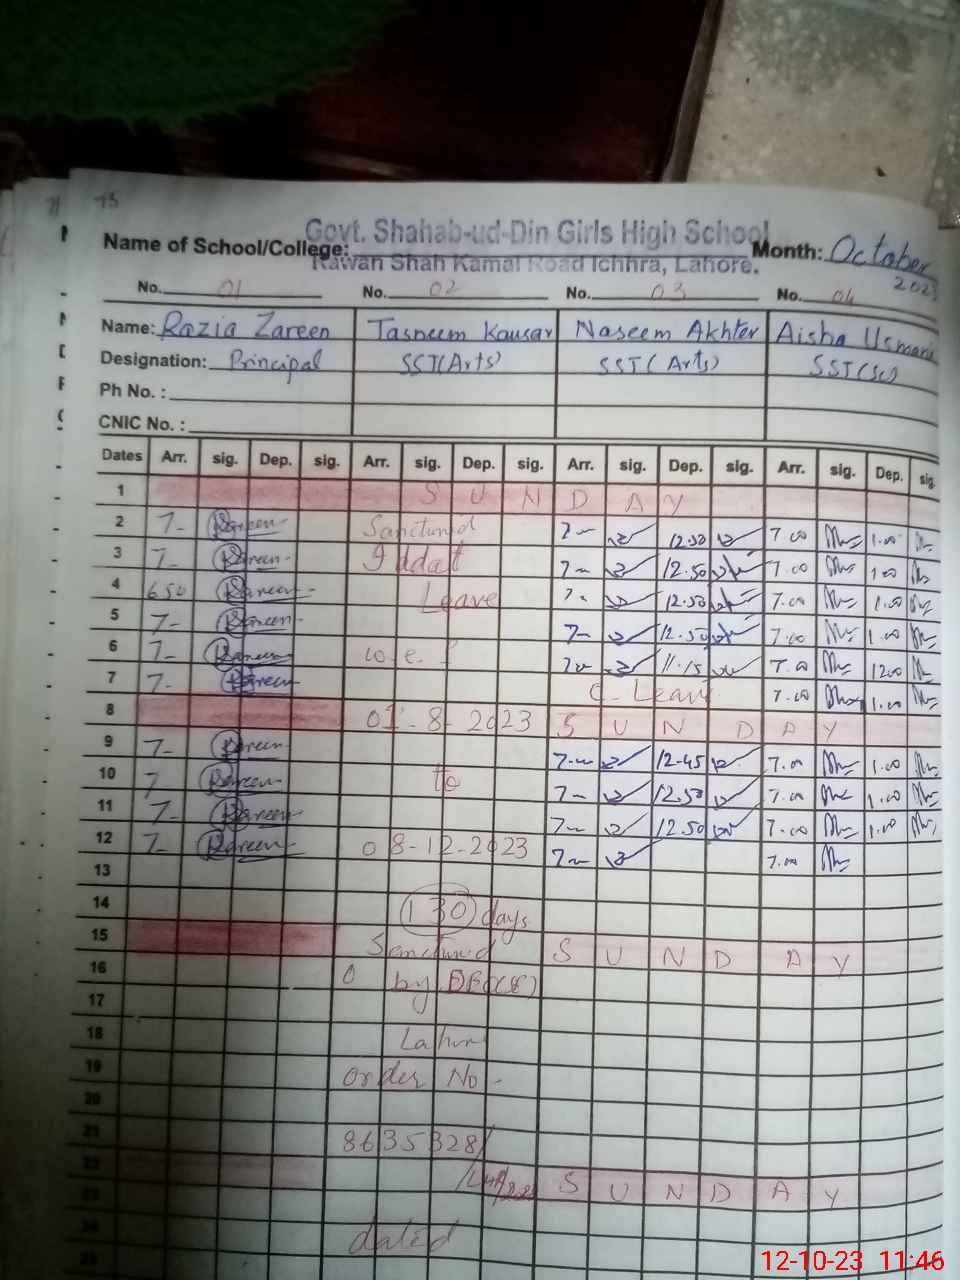 73
Govt. Shahab-ud-Din Girls High School
Name of School/College: Month: October
Rawan Shah Kamal Road Ichhra, Lahore. 2023
No. 01 No. 02 No. 03 No. 04
Name: Razia Zareen Tasneem Kausar Naseem Akhter Aisha Usmani
Designation: Principal SST(Arts) SST(Arts) SST(Sc)
Ph No. :
CNIC No. :
Dates Arr. sig. Dep. sig. Arr. sig. Dep. sig. Arr. sig. Dep. sig. Arr. sig. Dep. sig.
1 SUNDAY
2 7- Zareen Sanctined 7- 12.50 7.00 1.00
3 7- Zareen Iddat 7- 12.50 7.00 1.00
4 6.50 Zareen Leave 7- 12.50 7.00 1.00
5 7- Zareen 7- 12.50 7.00 1.00
6 7- Zareen w.e.f 7- 11.15 7.00 12.00
7 7- Zareen C-Leave 7.00 1.00
8 01-8-2023 SUNDAY
9 7- Zareen 7- 12.45 7.00 1.00
10 7- Zareen to 7- 12.50 7.00 1.00
11 7- Zareen 7- 12.50 7.00 1.00
12 7- Zareen 08-12-2023 7- 7.00
13
14 130 days
15 Senctined SUNDAY
16 by
17
18 Lahore
19 order No-
20
21 8635328/
22 SUNDAY
23
24 dated
25
12-10-23 11:46